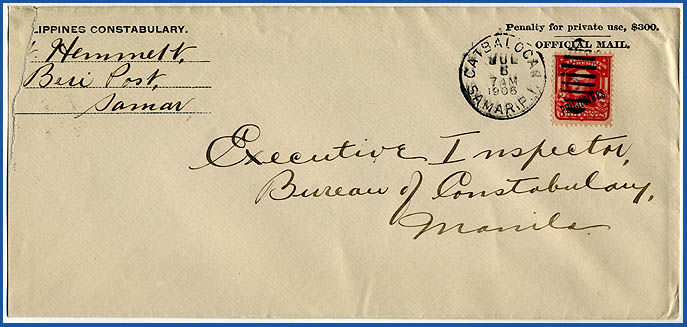 LIPPINES CONSTABULARY.
Hemmett,
Beri Post,
Samar
Penalty for private use, $300.
OFFICIAL MAIL.
CATBALOGAN
JUL
7 AM
1906
SAMAR, P.I.
Executive Inspector,
Bureau of Constabulary,
Manila